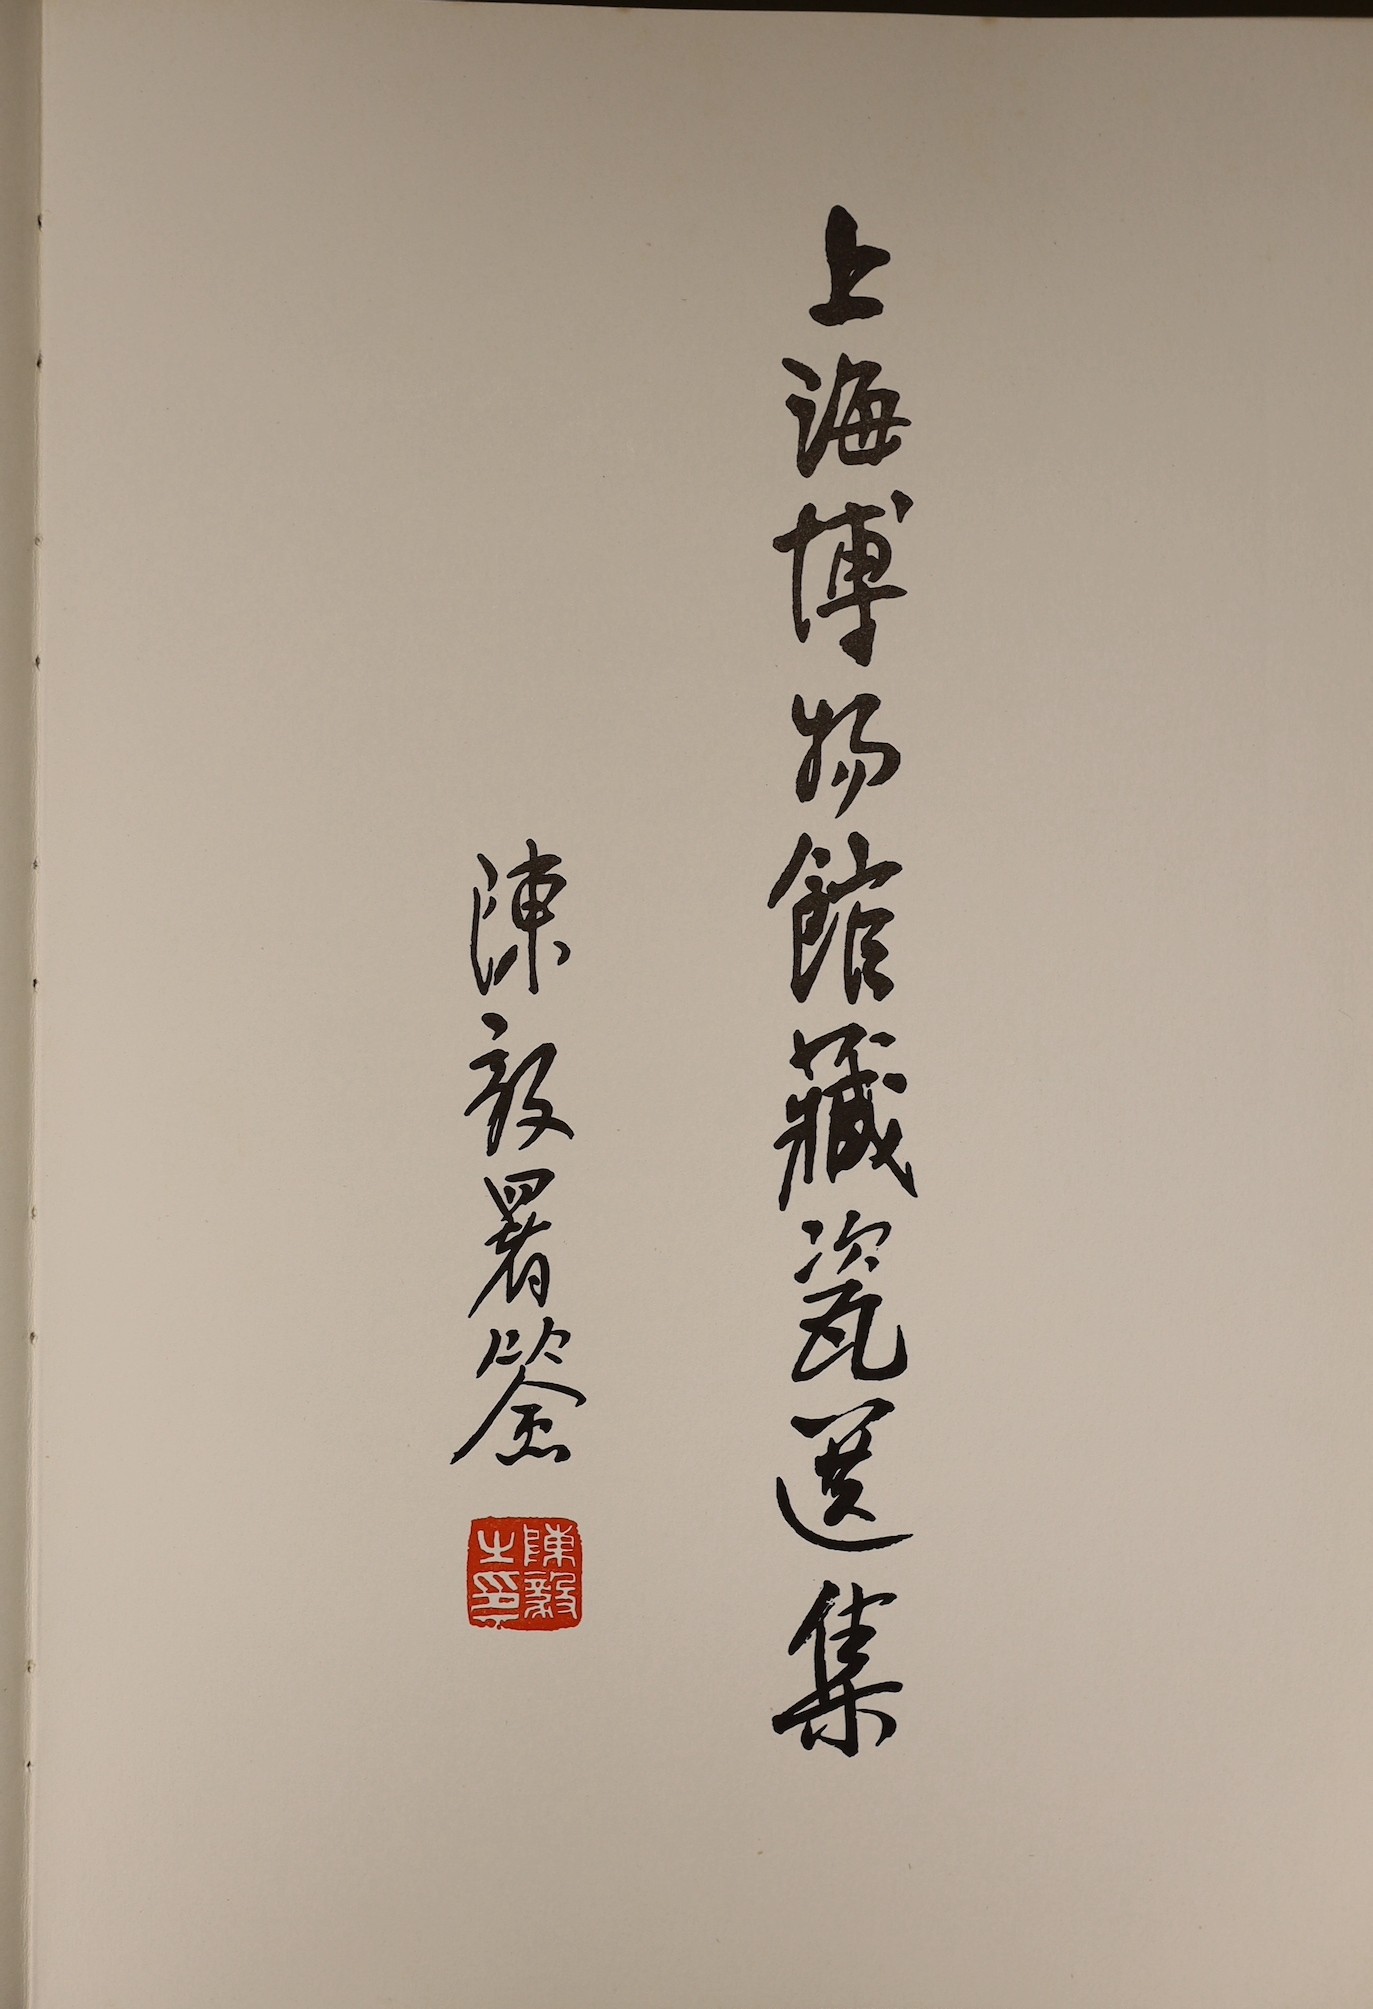 上海博物館藏瓷選集
陳毅署簽
陳毅之印